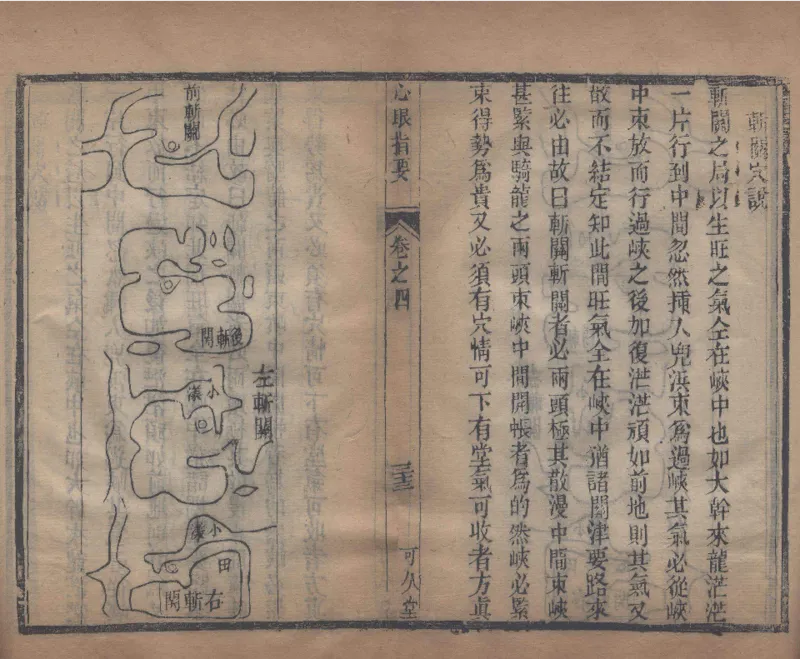 斬關穴說
斬關之局以生旺之氣全在峽中也如大幹來龍茫茫
一片行到中間忽然插入兜浜束爲過峽其氣必從峽
中束放而行過峽之後加復茫茫頑如前地則其氣又
故而不結定知此間旺氣全在峽中猶諸關津要路來
往必由故曰斬關斬關者必兩頭極其散漫中間束峽
甚緊與騎龍之兩頭束峽中間開帳者爲的然峽必緊
束得勢爲貴又必須有穴情可下有堂氣可收者方眞
心眼指要
卷之四
可久堂
前斬關
後斬關
左斬關
小漾
小漾
田
右斬關